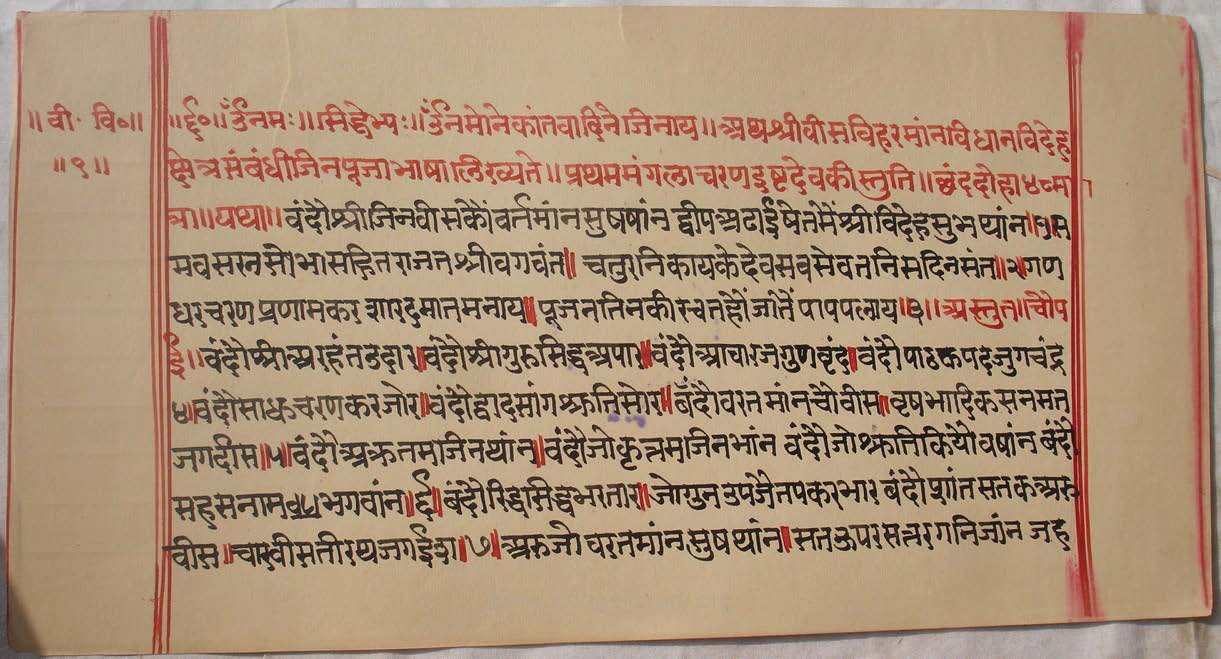 ॥ वी॰ वि॰॥
॥१॥
॥र्द्द॰॥ ॐनमः॥ सिद्धेभ्यः॥ ॐनमोनेकांतवादिनैजिनाय॥ अथश्रीवीसविहरमांनविधानविदेह
क्षेत्रसंवंधीजिनपूजाभाषालिख्यते॥ प्रथममंगलाचरणइष्टदेवकीस्तुति॥ छंददोहा४८मा
त्रा॥ यथा॥ वंदौश्रीजिनवीसकौंवर्तमांनसुषषांन द्वीपअढाईषेतमेंश्रीविदेहसुभथांन॥१॥स
मवसरनसोभासहितराजतश्रीवगवंत॥ चतुरनिकायकेदेवसवसेवतनिसदिनसंत॥२॥गण
धरचरणप्रणामकर शारदमातमनाय॥ पूजनतिनकीरचतहोंजातेंपापपलाय॥३॥ अस्तुत॥चौप
ई॥ वंदौश्रीअरहंतउदार॥वंदौश्रीगुरुसिद्धअपार॥वंदौआचारजगुणवृंद॥ वंदौपाठकपदजुगचंद्र
४॥वंदौसाधुचरणकरजोर॥वंदौद्वादसांगश्रुतिसोर॥ बंदौवरतमांनचौवीस॥वृषभादिकसनमत
जगदीस॥५॥वंदौअक्रतमजिनथांन॥वंदौजोकृत्मजिनभांन वंदौजोश्रुतिकियौवषांन बंदौ
सहसनाम भगवांन॥६॥बंदौरिद्धसिद्धभरतार॥जोगुनउपजैतपकरभार बंदौप्रांतसतकअरु
वीस॥चारवीसतीरथजगईश॥७॥अरुजोवरतमांनसुषथांन॥सतऊपरसत्तरगनिजांन जह